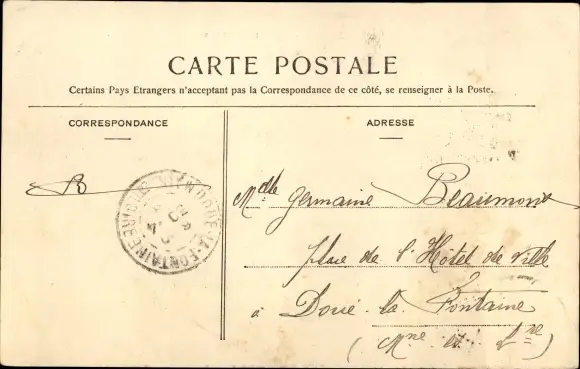 CARTE POSTALE
Certains Pays Etrangers n'acceptant pas la Correspondance de ce côté, se renseigner à la Poste.
CORRESPONDANCE
ADRESSE
B
Mdlle Germaine Beaumont
place de l'Hôtel de Ville
à Doué-la Fontaine
(Mne et Lre)
DOUÉ-LA-FONTAINE